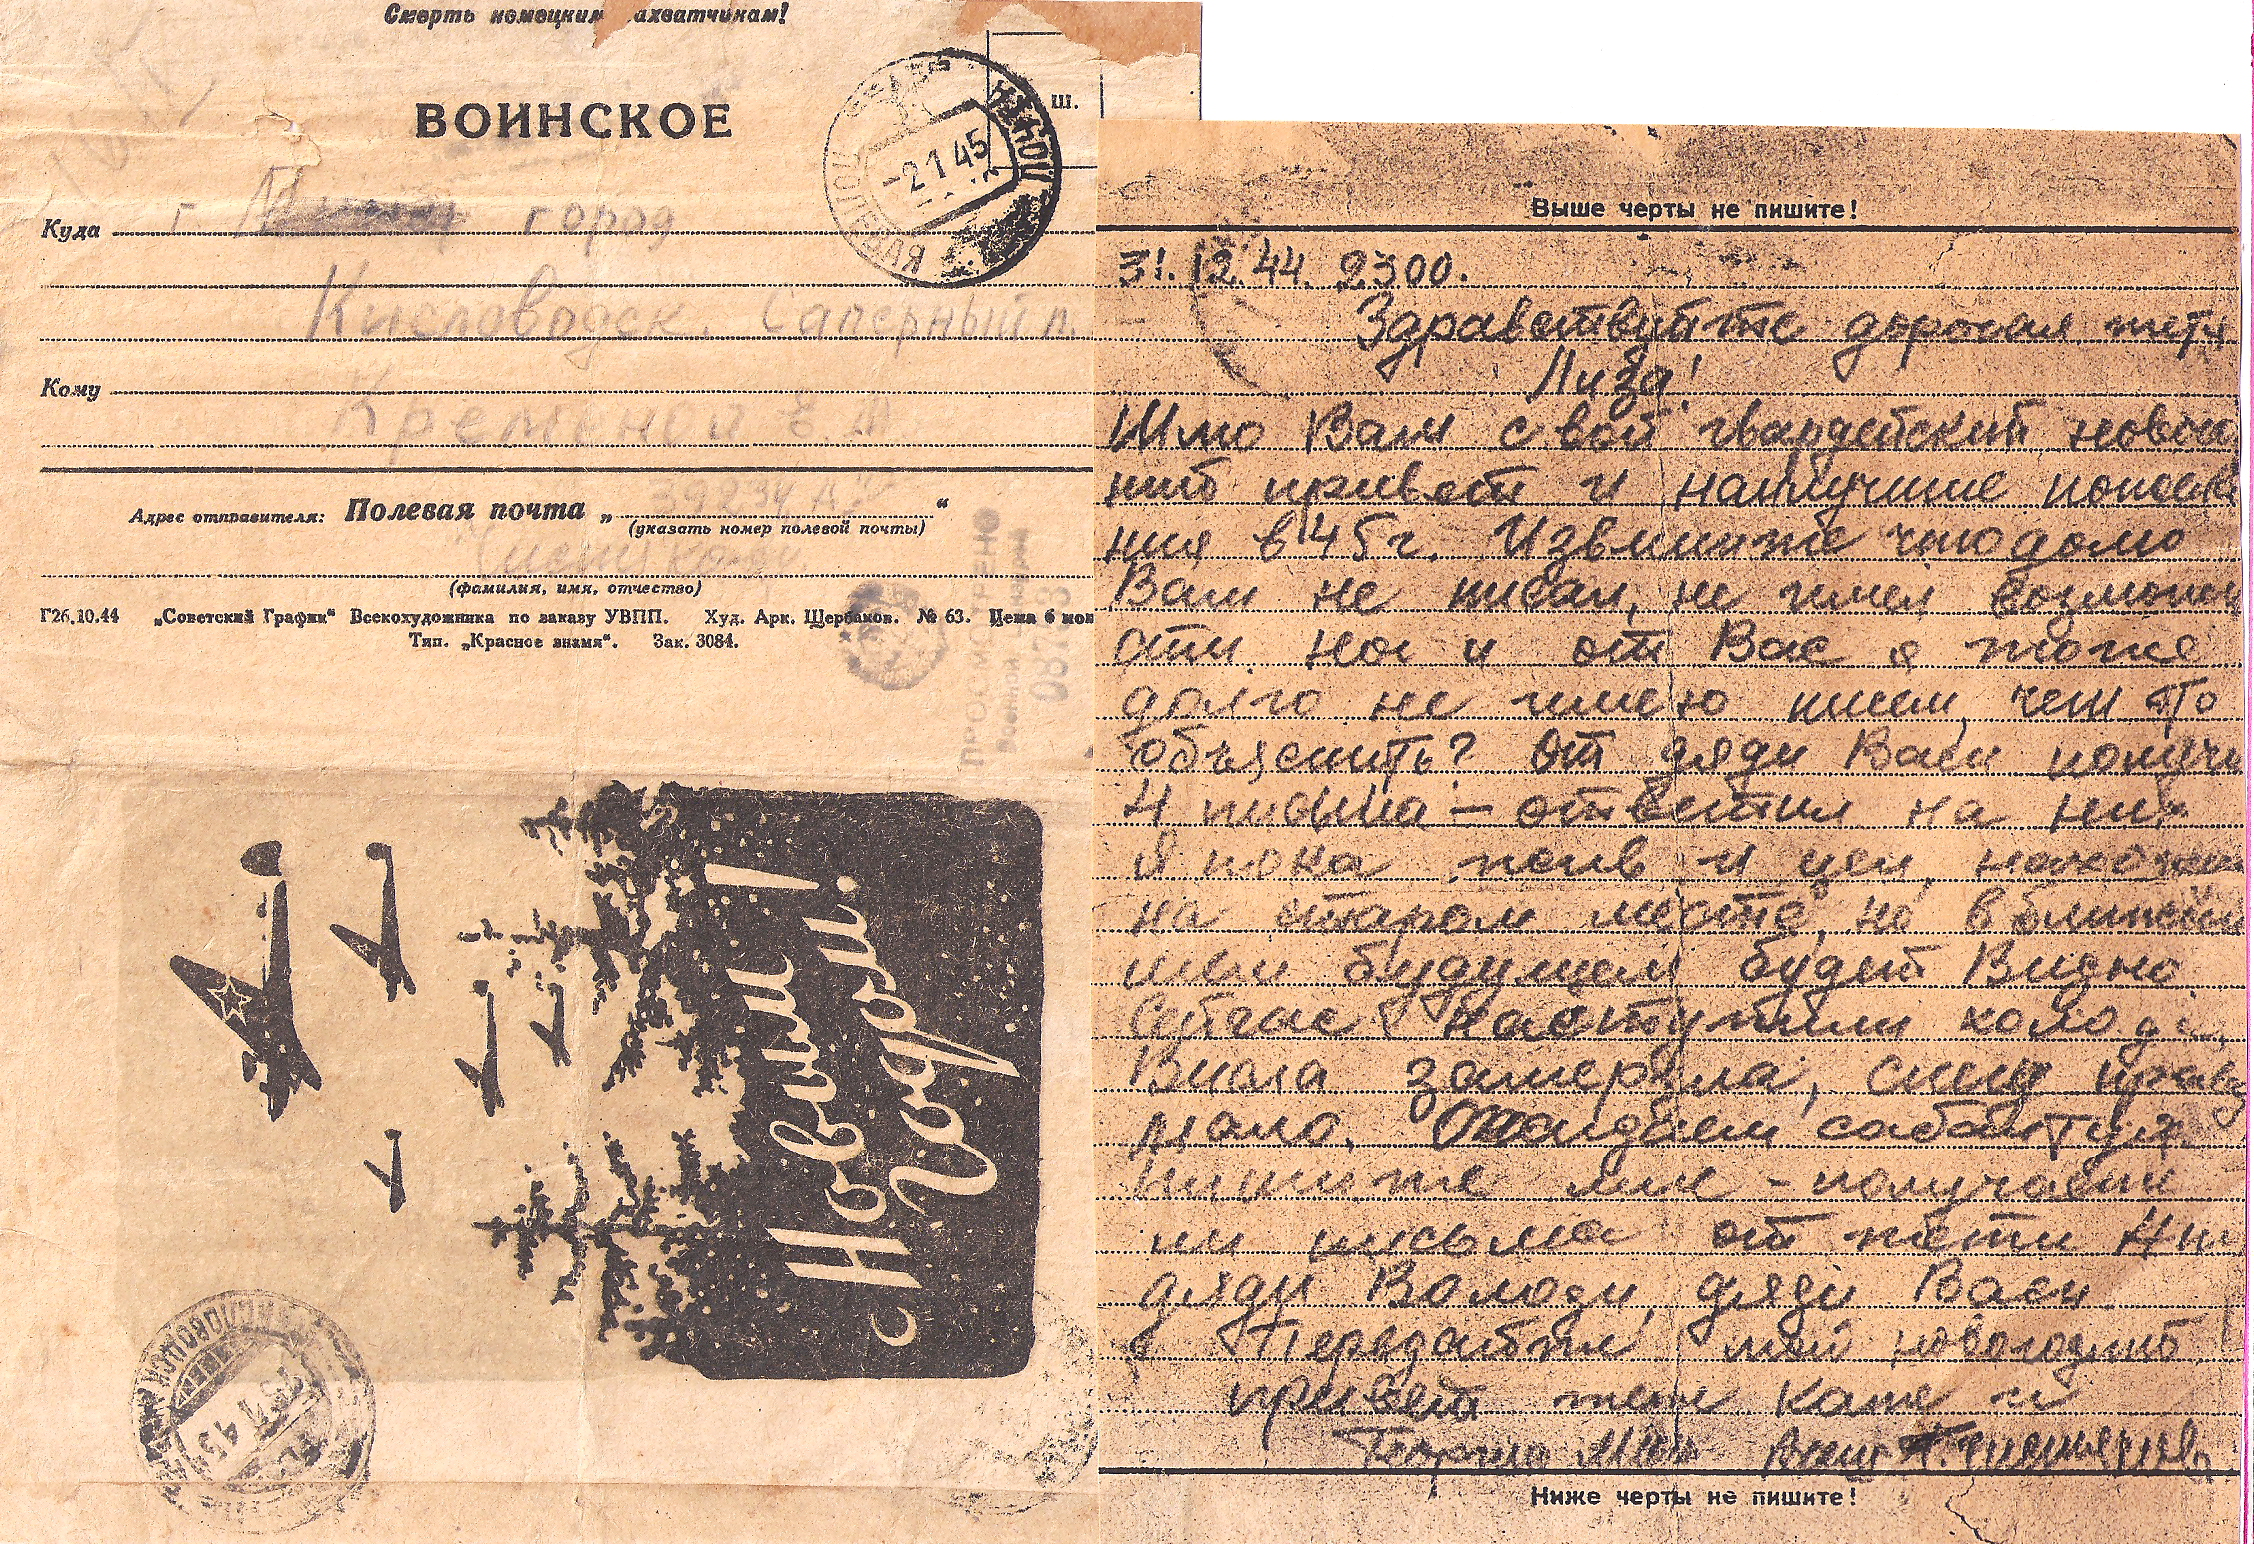 Смерть немецким захватчикам!
ВОИНСКОЕ
ш.
ПОЛЕВАЯ
-2 1 45
Куда г. город
Кисловодск. Саперный п.
Кому
Е. А
Адрес отправителя: Полевая почта „ 39234 “
(указать номер полевой почты)
(фамилия, имя, отчество)
Г26.10.44 „Советский График“ Всекохудожника по заказу УВПП. Худ. Арк. Щербаков. № 63. Цена 6 коп
Тип. „Красное знамя“. Зак. 3084.
ПРОСМОТРЕНО
Военной
С Новым
Годом!
КИСЛОВОДСК
Выше черты не пишите!
31. 12. 44. 23 00.
Здравствуйте дорогая тетя
Лиза!
Шлю Вам свой гвардейский новогод
ний привет и наилучшие пожела
ния в 45 г. Извините что долго
Вам не писал, не имел возможно
сти. Но и от Вас я тоже
долго не имею писем, чем это
объяснить? От дяди Васи получил
4 письма - ответил на них
Я пока жив и цел, нахожусь
на старом месте, но в ближай
шем будущем будет видно.
Сейчас наступили холода,
Висла замерзла, снегу правда
мало. Ожидаем сабантуя.
Пишите мне - получаете
ли письма от тети Нины
дяди Володи, дяди Васи
Передайте мой новогодний
привет тети Кате и
Ваш
Ниже черты не пишите!